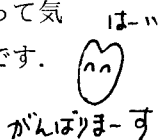 って気
です.
は〜い
がんばりま〜す